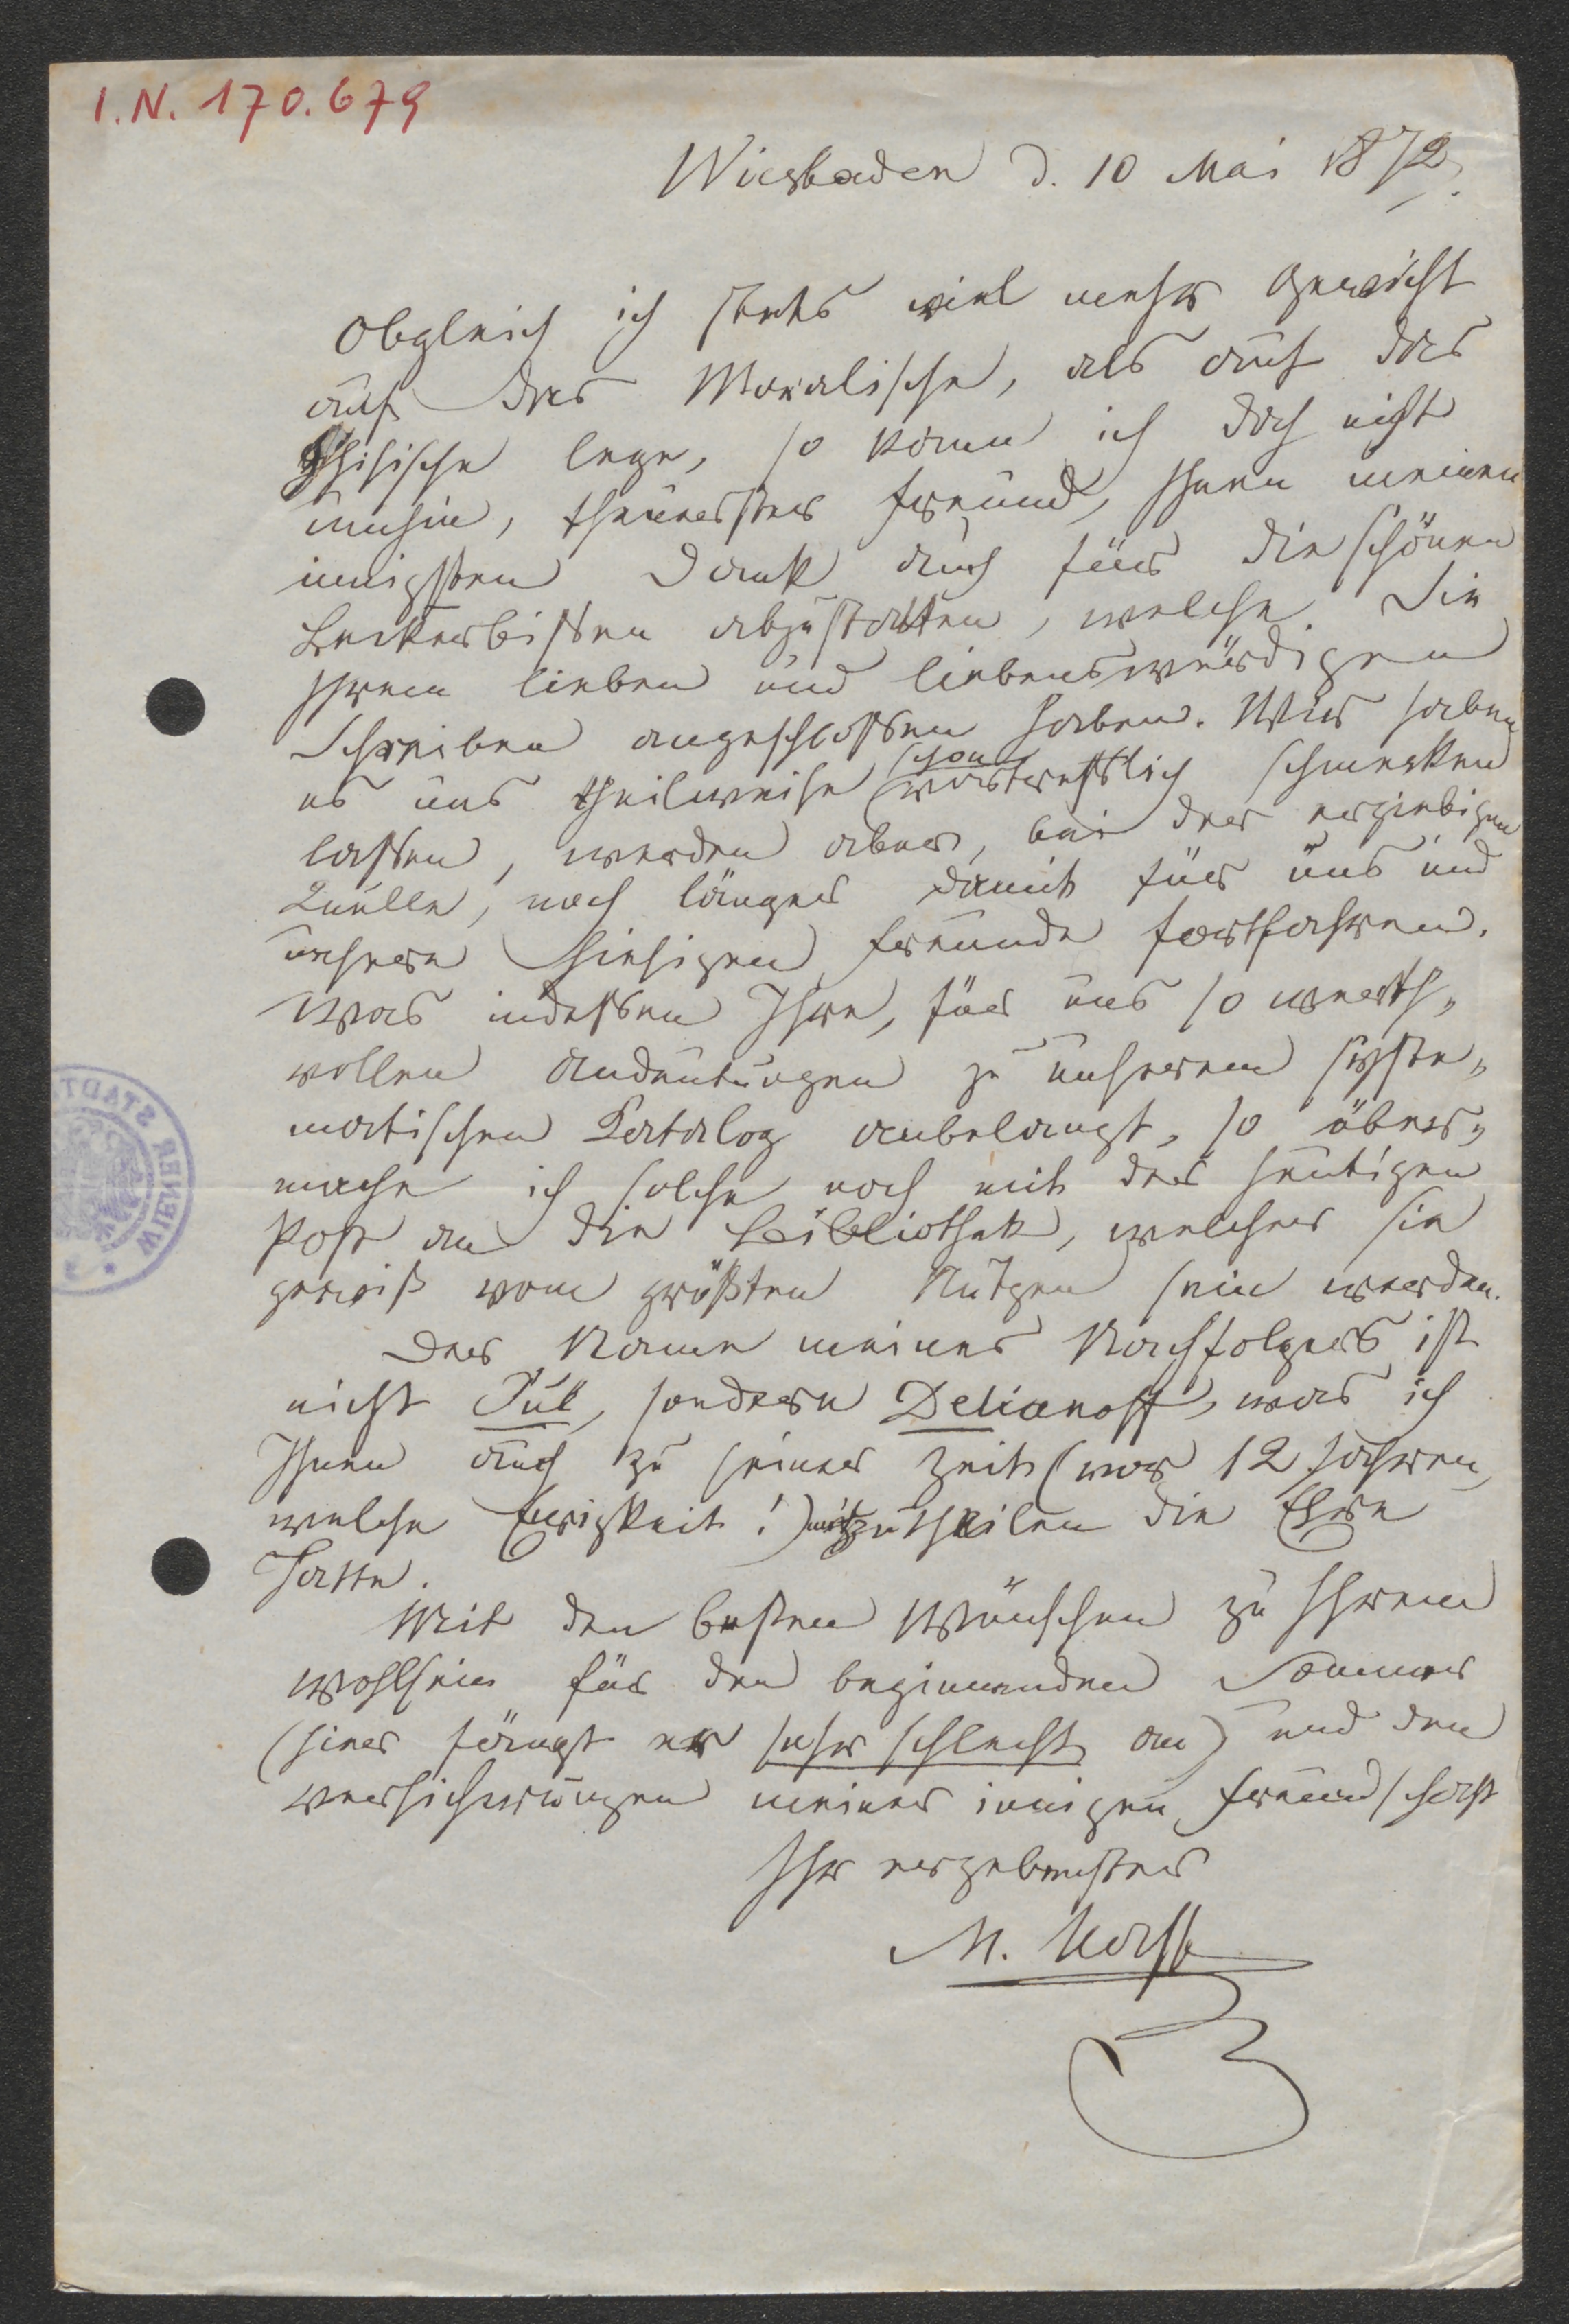 I.N. 170.679
Wiesbaden d. 10 Mai 1872.
Obgleich ich stets viel mehr Gewicht
auf das Moralische, als auf das
Phisische lege, so kann ich doch nicht
umhin, theuerster Freund, Ihnen meinen
innigsten Dank auch für die schönen
Leckerbissen abzustatten, welche Sie
Ihrem lieben und liebenswürdigen
Schreiben angeschlossen haben. Wir haben
es uns theilweise schon vortrefflich schmecken
lassen, werden aber, bei der ergiebigen
Quelle, noch länger damit für uns und
unsere hiesigen Freunde fortfahren.
Was indessen Ihre, für uns so werth„
vollen Andeutungen zu unserem syste„
matischen Catalog anbelangt, so über„
mache ich solche noch mit der heutigen
Post an die Bibliothek, welcher sie
gewiß vom größten Nutzen sein werden.
Der Name meines Nachfolgers ist
nicht , sondern Delianoff, was ich
Ihnen auch zu seiner Zeit (vor 12 Jahren,
welche Ewigkeit!) mitzutheilen die Ehre
hatte.
Mit den besten Wünschen zu Ihrem
Wohlsein für den beginnenden Sommer
(hier fängt er sehr schlecht an) und den
Versicherungen meiner innigen Freundschaft
Ihr ergebenster
M. Korff
WIENER STADT